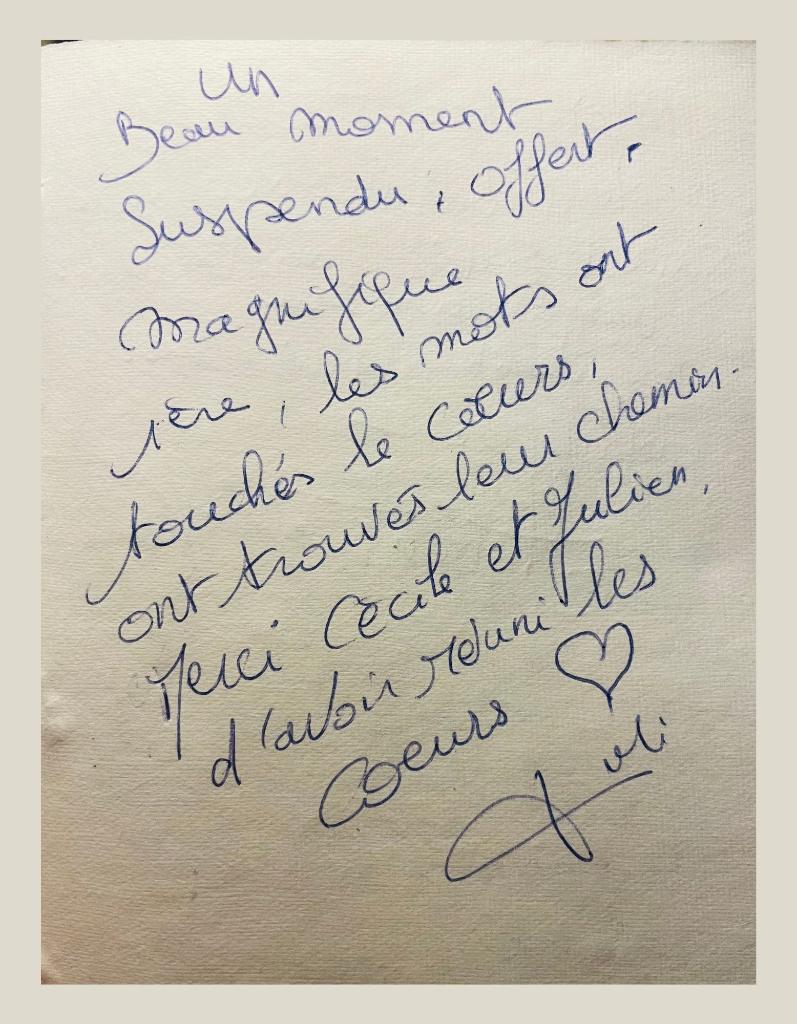 Un
Beau moment
Suspendu, offert,
magnifique
1ère, les mots ont
touchés le cœurs,
ont trouvés leur chemin.
Merci Cécile et Julien,
d'avoir réuni les
Coeurs ♡